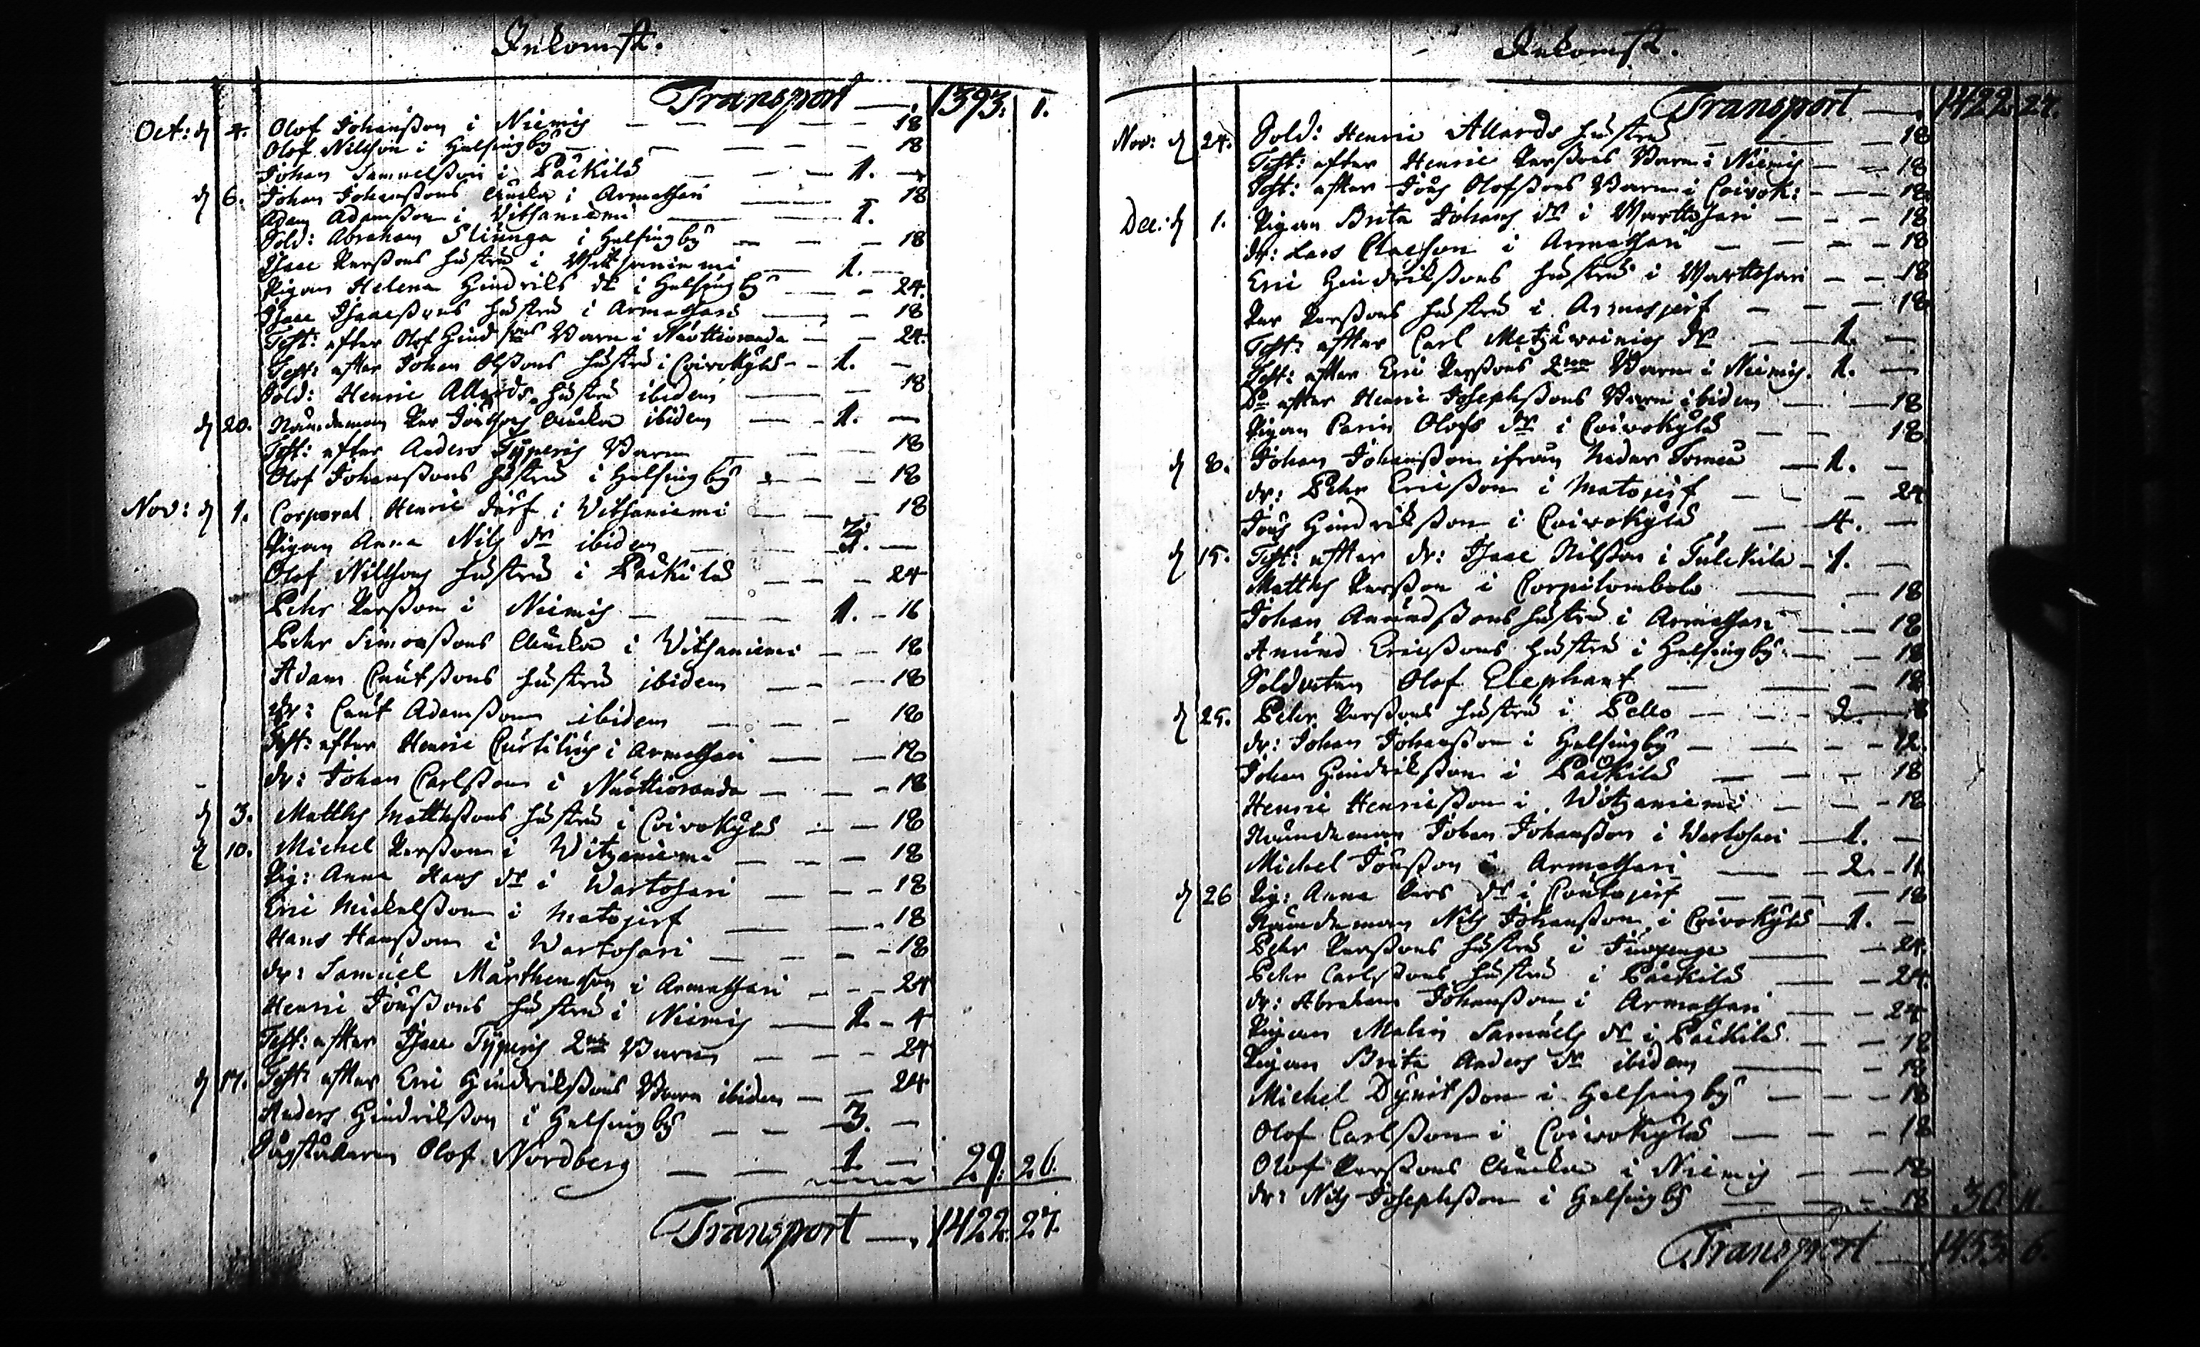 Inkomst.
Transport —. 1393. 1.
Oct: d 4. Olof Johanßon i Niemis — — — — 18
Olof Nilsson i Helsingby — — — — 18
Johan Samuelßon i Päkkilä — — — 1. —
d 6. Johan Johanßons Änka i Armassari — — 18
Adam Adamßon i Vitsaniemi — — 1. —
Sold: Abraham Sliunga i Helsingby — — 18
Isaac Perßons hustru i Vitsaniemi — 1. —
Pigan Helena Hindriks dr i Helsingby — — 24.
Isaac Isaacßons hustru i Armassari — — 18
Test: efter Olof Hindßons Barn i Nuottioranda — — 24.
Test: efter Johan Olßons hustru i Coivokylä — 1. —
Sold: Henric Allards hustru ibidem — — 18
d 20. Nämndeman Per Jönßons Änka ibidem — 1. —
Test: efter Anders Typeris Barn — — 18
Olof Johanßons hustru i Helsingby — — 18
Nov: d 1. Corporal Henric Durf i Vitsaniemi — — 18
Pigan Anna Nils dr ibidem — — 3. —
Olof Nilssons hustru i Päkkilä — — — 24
Pehr Perßon i Niemis — — — 1. — 16
Pehr Simonßons Änka i Vitsaniemi — — 18
Adam Cnutßons hustru ibidem — — — 18
dr: Cnut Adamßon ibidem — — — 18
Test: efter Henric i Armassari — — 18
dr: Johan Carlßon i Nuottioranda — — — 18
d 3. Matths Matthßons hustru i Coivokylä — — 18
d 10. Michel Perßon i Witzaniemi — — — 18
Pig: Anna Hans dr i Wartosari — — — 18
Eric Mickelßon i Matojerf — — — 18
Hans Hanßon i Wartosari — — — 18
dr: Samuel Mårthenson i Armassari — — — 24
Henric Jönßons hustru i Niemis — 1. — 4
Test: efter Isaac Typeris 2ne Barn — — — 24
d 17. Test: efter Eric Hindrikßons Barn ibidem — — 24
Anders Hindrikßon i Helsingby — — 3. —
Olof Nordberg — — 1. — 29. 26.
Transport —. 1422. 27.
Inkomst.
Transport —. 1422 27.
Nov: d 24. Sold: Henric Allards hustru — — — 18
Test: efter Henric Perßons Barn i Niemis — — 18
Test: efter Jöns Olofßons Barn i Coivok: — — 18.
Dec: d 1. Pigan Brita Johans dr i Wartosari — — — 18
dr: Lars Claeßon i Armassari — — — — 18
Eric Hindrikßons hustru i Wartosari — — 18
Per Perßons hustru i Armasjerf — — 18
Test: efter Carl dr — — 1. —
Test: efter Eric Perßons 2ne Barn i Niemis. 1. —
Do efter Henric Josephßons Barn ibidem — — 18
Pigan Carin Olofs dr i Coivokylä — — 18
d 8. Johan Johanßon ifrån Neder Torneå — 1. —
dr: Pehr Ericßon i Matojerf — — — 24
Jöns Hindrikßon i Coivokylä — 4. —
d 15. Test: efter dr: Isaac Nilßon i — 1. —
Matths Perßon i Corpilombolo — — 18
Johan Amundßons hustru i Armassari — — 18
Amund Ericßons hustru i Helsingby — — 18
Soldaten Olof Elephant — — — 18
d 25. Pehr Perßons hustru i Pello — — — 2. — 8
dr: Johan Johanßon i Helsingby — — — — 12.
Johan Hindrikßon i Päkkilä — — — 18
Henric Henricßon i Witzaniemi — — — 18
Nämndeman Johan Johanßon i Wartosari — 1. —
Michel Jönßon i Armassari — — 2. — 11
d 26 Pig: Anna Pers dr i — — — 18
Nämndeman Nils Johanßon i Coivokylä — 1. —
Pehr Perßons hustru i — — 24.
Pehr Carlßons hustru i Päkkilä — — 24.
dr: Abraham Johanßon i Armassari — — — 24
Pigan Malin Samuels dr i Päkkilä — — 18
Pigan Brita Anders dr ibidem — — 18
Michel ßon i Helsingby — — — 18
Olof Carlßon i Coivokylä — — — 18
Olof Perßons Änka i Niemis — — 18
dr: Nils Josephßon i Helsingby — — 18 30. 11.
Transport —. 1453. 6.